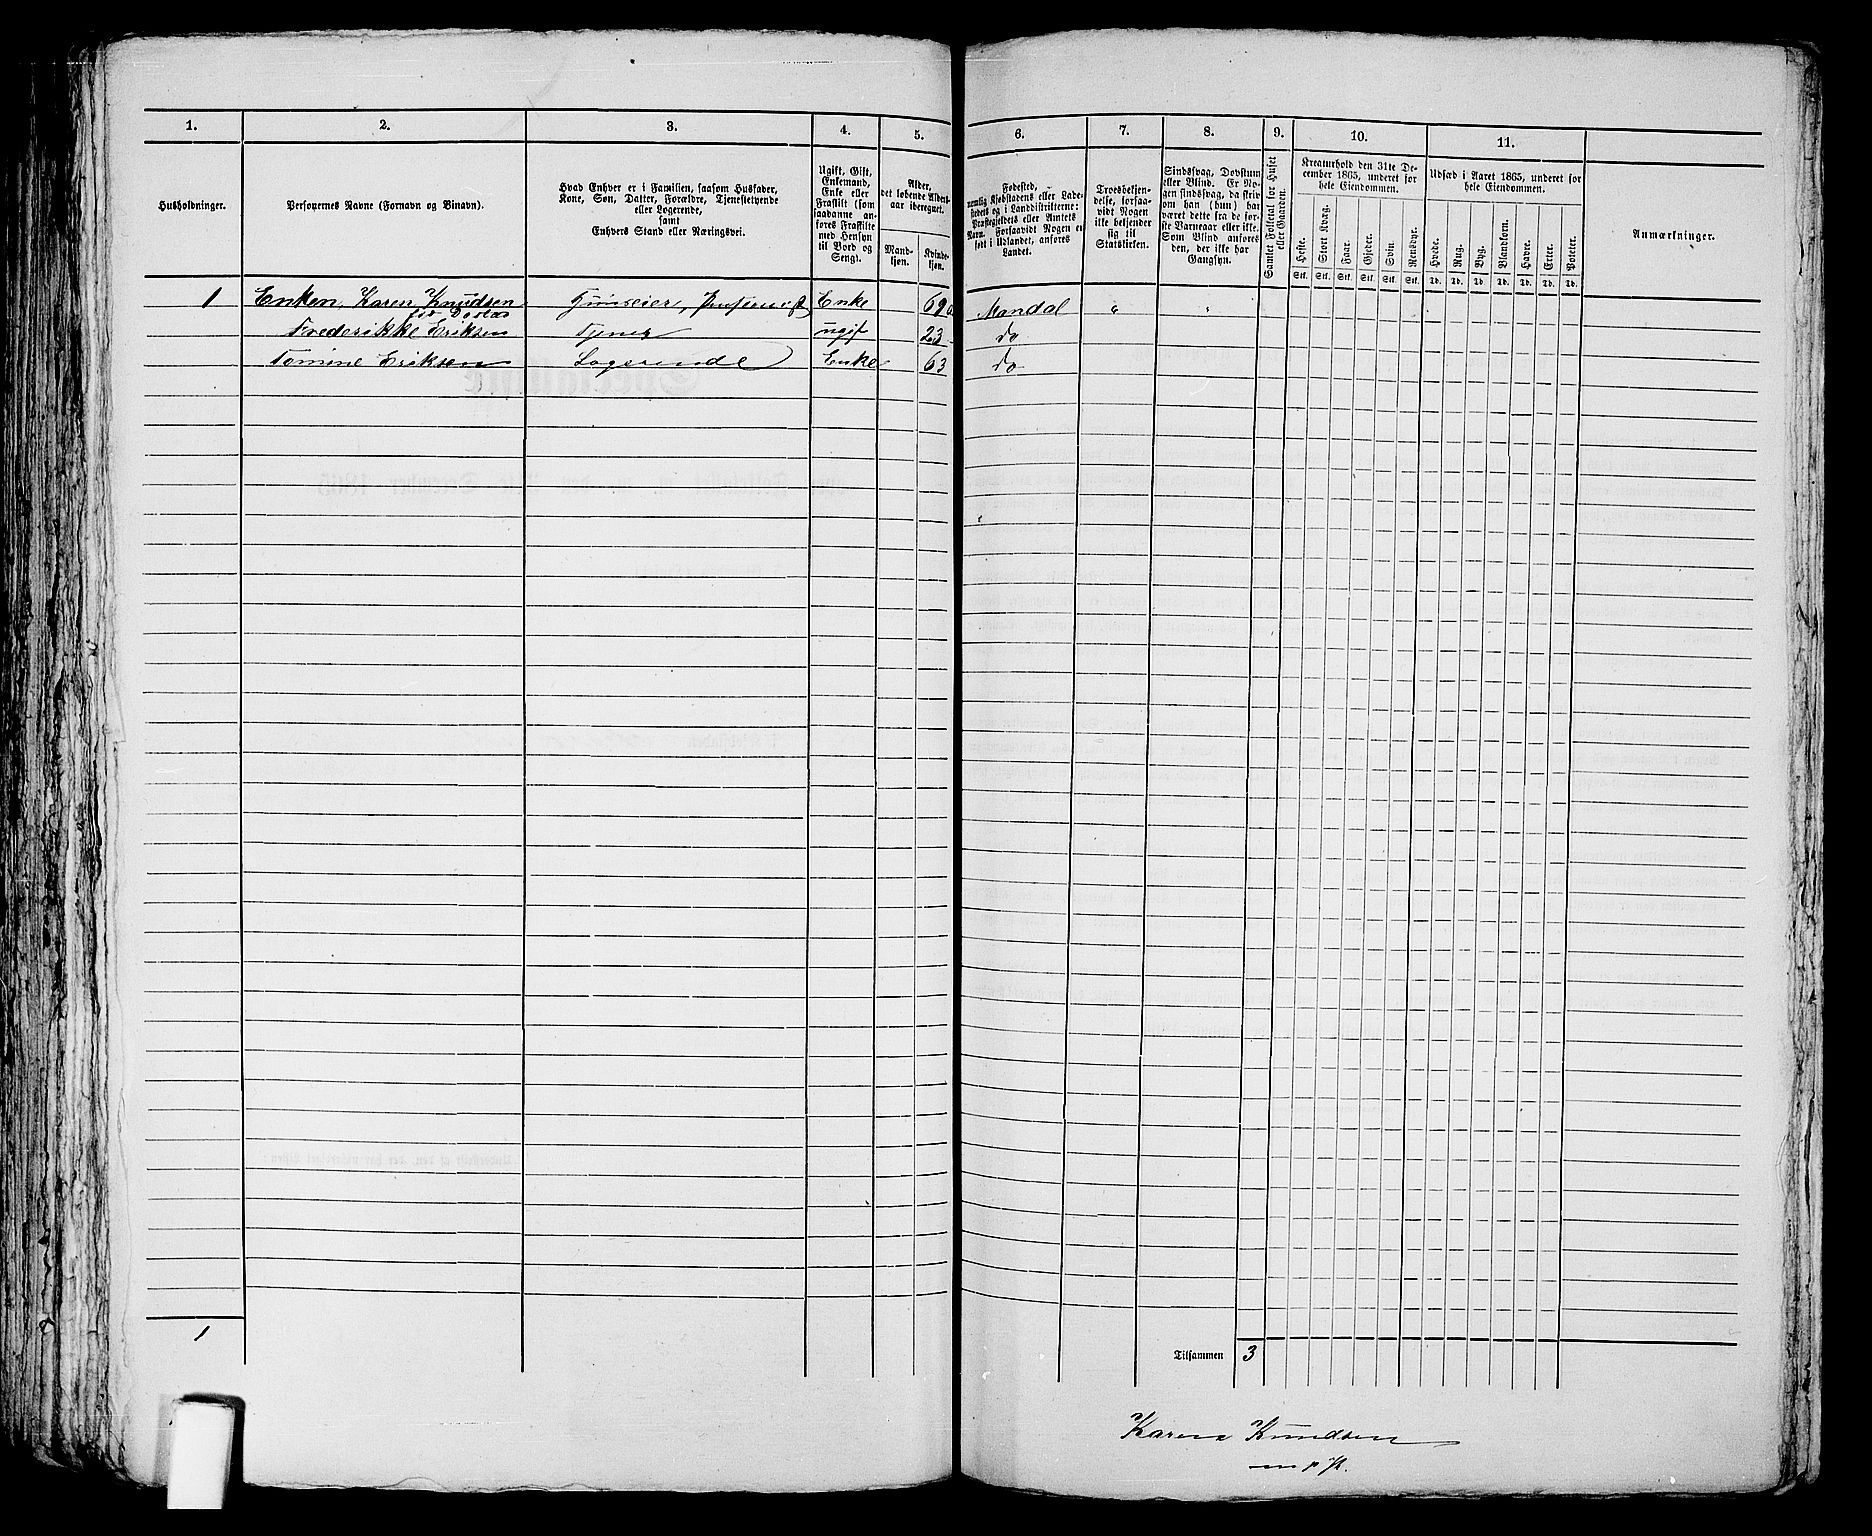 1. 2. 3. 4. 5. 6. 7. 8. 9. 10. 11.
Husholdninger.
Personernes Navne (Fornavn og Binavn).
Hvad Enhver er i Familien, saasom Husfader,
Kone, Søn, Datter, Forældre, Tjenestetyende
eller Logerende,
samt
Enhvers Stand eller Næringsvei.
Ugift, Gift,
Enkemand,
Enke eller
Fraskilt (som
saadanne an-
føres Fraskilte
med Hensyn
til Bord og
Seng).
Alder,
det løbende Alders-
aar iberegnet.
Mand-
kjøn.
Kvinde-
kjøn.
Fødested,
nemlig Kjøbstadens eller Lade-
stedets og i Landdistrikterne:
Præstegjeldets eller Amtets
Navn. Forsaavidt Nogen er
født i Udlandet, anføres
Landet.
Troesbekjen-
delse, forsaa-
vidt Nogen
ikke bekjender
sig til
Statskirken.
Sindssvag, Døvstum
eller Blind. Er No-
gen sindssvag, da skriv
om han (hun) har
været dette fra de før-
ste Barneaar eller ikke.
Som Blind anføres
den, der ikke har
Gangsyn.
Samlet Folketal for Huset
eller Gaarden.
Kreaturhold den 31te De-
cember 1865, underet for
hele Eiendommen.
Heste. Stort Kvæg. Faar. Gjeder. Svin. Rensdyr.
Stk. Stk. Stk. Stk. Stk. Stk.
Udsæd i Aaret 1865, underet for
hele Eiendommen.
Hvede. Rug. Byg. Blandkorn. Havre. Erter. Poteter.
Td. Td. Td. Td. Td. Td. Td.
Anmærkninger.
1 Enken, Karen Knudsen Enke 69 Mandal " "
Frederikke Eriksen Tjener ugif 23 do
Tomine Eriksen Logerende Enke 63 do
1
Tilsammen 3
Karen Knudsen